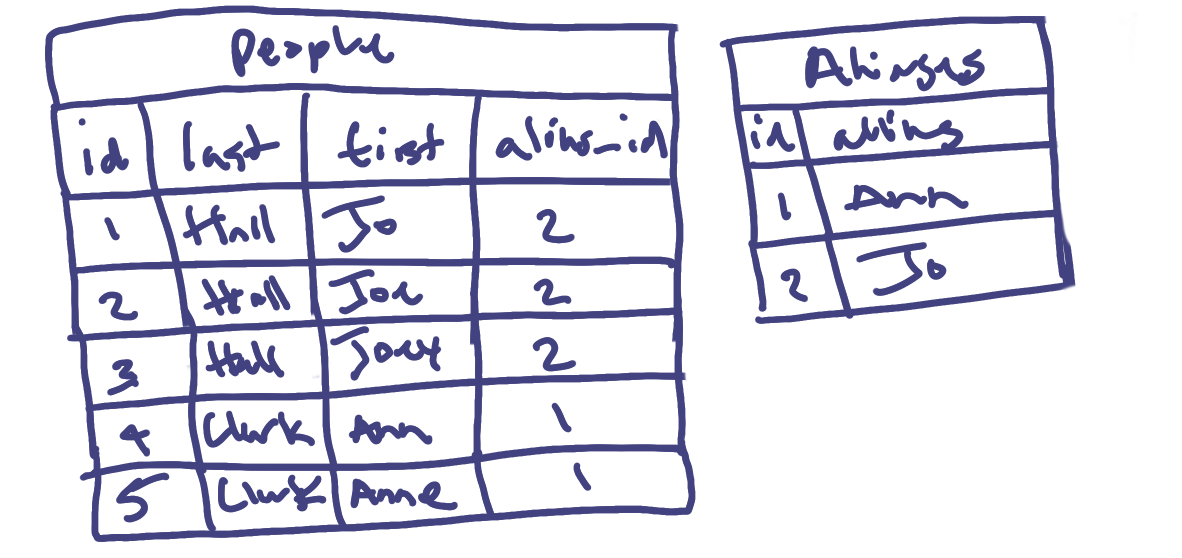 People
id last first alias_id
1 Hall Jo 2
2 Hall Joe 2
3 Hall Joey 2
4 Clark Ann 1
5 Clark Anne 1
Aliases
id alias
1 Ann
2 Jo